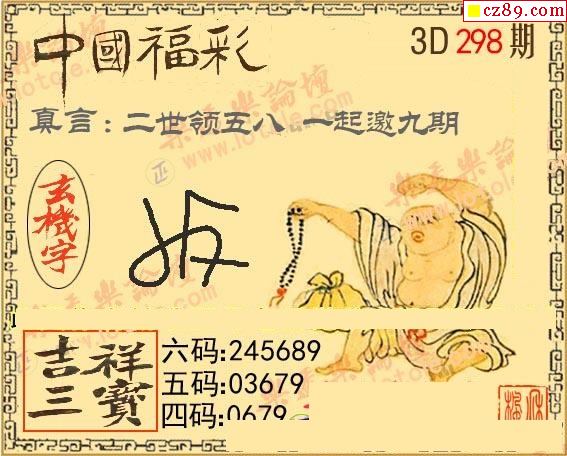 cz89.com
中國福彩
3D 298 期
真言:二世领五八 一起邀九期
玄機字
吉祥三寶
六码:245689
五码:03679
四码:0679